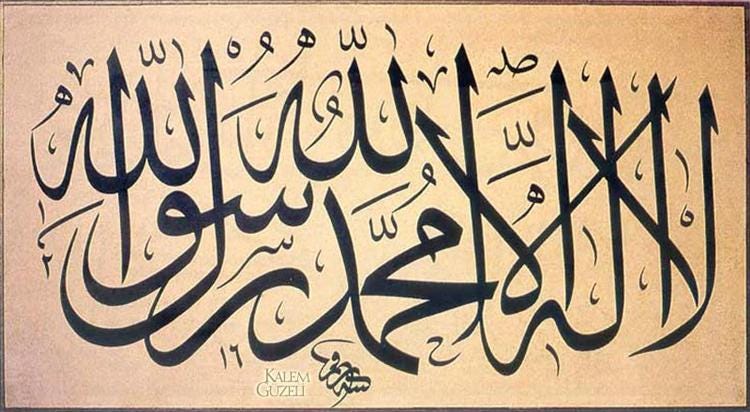 لا اله الا الله محمد رسول الله
١٢ ١٦
KALEM
GÜZELİ